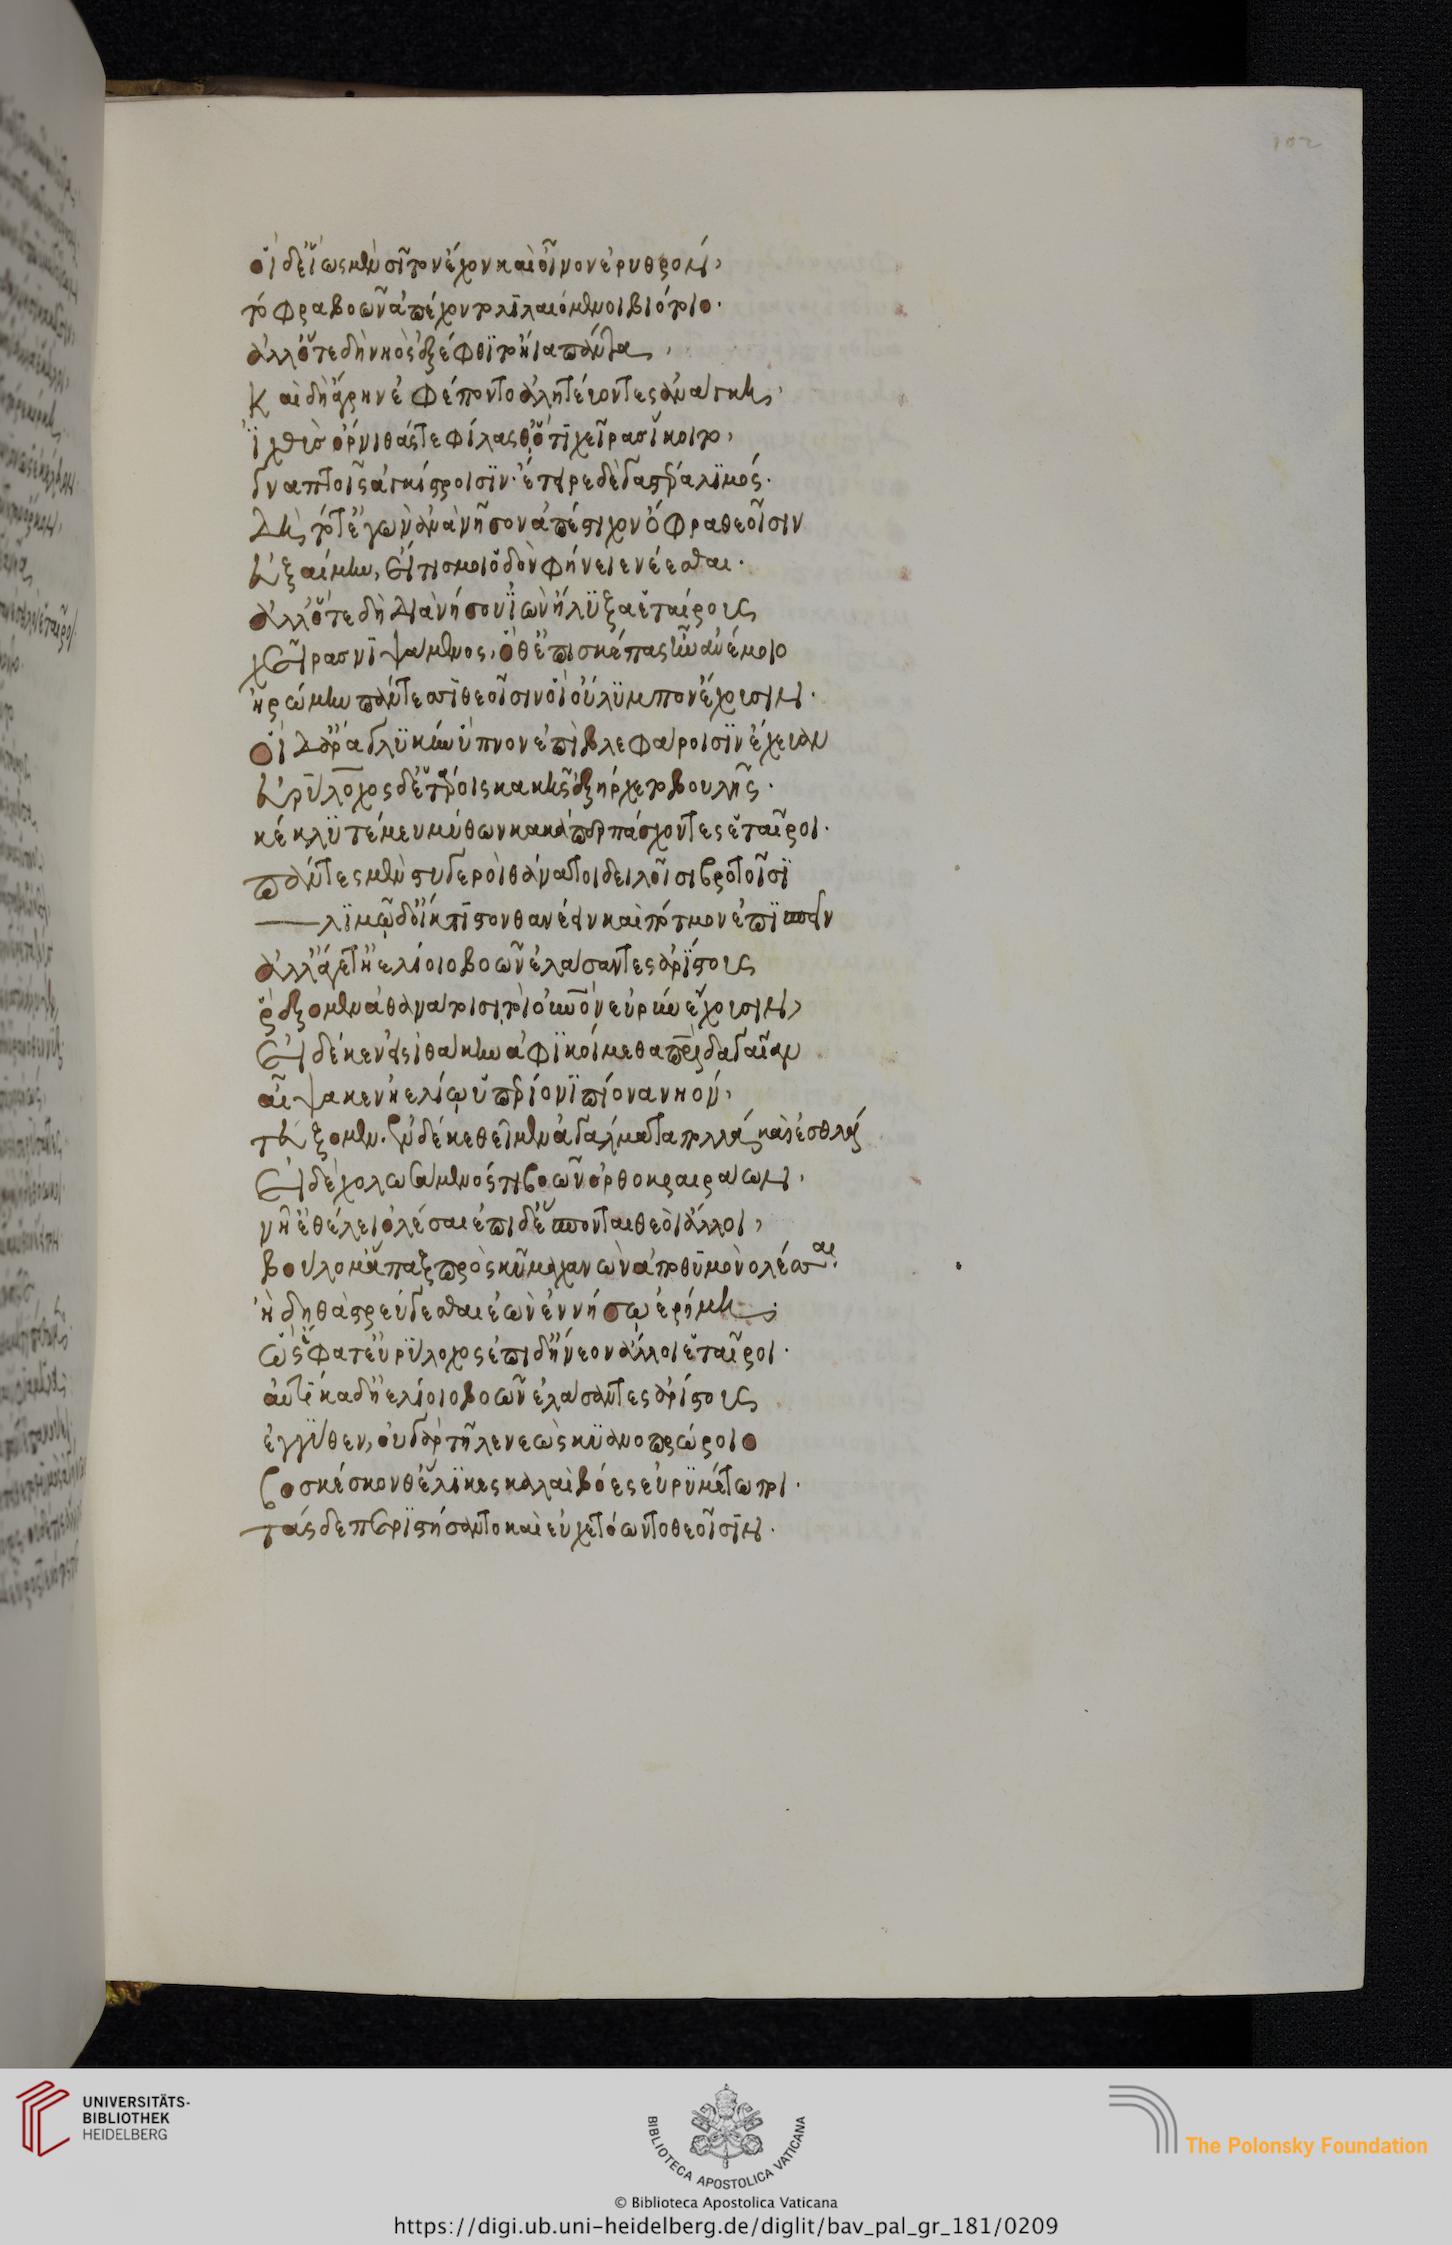 102
οἱ δ' εἵως μὲν σῖτον ἔχον καὶ οἶνον ἐρυθρόν,
τόφρα βοῶν ἀπέχοντο λιλαιόμενοι βιότοιο.
ἀλλ' ὅτε δὴ νηὸς ἐξέφθιτο ἤϊα πάντα,
Καὶ δὴ ἄγρην ἐφέποντο ἀλητεύοντες ἀνάγκη,
ἰχθῦς ὄρνιθάς τε φίλας θ' ὅ,τι χεῖρας ἵκοιτο,
γναπτοῖς ἀγκίστροισιν· ἔτειρε δὲ γαστέρα λιμός.
δὴ τότ' ἐγὼν ἀνὰ νῆσον ἀπέστιχον ὄφρα θεοῖσιν
εὐξαίμην, εἴ τις μοι ὁδὸν φήνειε νέεσθαι.
ἀλλ' ὅτε δὴ διὰ νήσου ἰὼν ἤλυξα ἑταίρους
χεῖρας νιψάμενος, ὅθ' ἐπὶ σκέπας ἦν ἀνέμοιο
ἠρώμην πάντεσσι θεοῖσιν οἳ ὄυλυμπον ἔχουσιν.
οἱ δ' ἄρα γλυκὺν ὕπνον ἐπὶ βλεφάροισιν ἔχευαν
εὐρύλοχος δ' ἑτάροις κακῆς ἐξήρχετο βουλῆς.
κέκλυτέ μευ μύθων κακά περ πάσχοντες ἑταῖροι.
πάντες μὲν στυγεροὶ θάνατοι δειλοῖσι βροτοῖσι
λιμῷ δ' οἴκτιστον θανέειν καὶ πότμον ἐπισπεῖν
ἀλλ' ἄγετ' ἠελίοιο βοῶν ἐλάσαντες ἀρίστους
ῥέξομεν ἀθανάτοισι τοὶ οὐρανὸν εὐρὺν ἔχουσιν,
Εἰ δέ κεν εἰς ἰθάκην ἀφικοίμεθα πατρίδα γαῖαν
αἶψά κεν ἠελίῳ ὑπερίονι πίονα νηόν,
τεύξομεν. ἐν δέ κε θεῖμεν ἀγάλματα πολλά καὶ ἐσθλά
Εἰ δὲ χολωσάμενός τι βοῶν ὀρθοκραιράων,
νῆ' ἐθέλει ὀλέσαι ἐπὶ δ' ἕσπονται θεοὶ ἄλλοι,
βούλομ' ἅπαξ πρὸς κῦμα χανὼν ἀπὸ θυμὸν ὀλέσσαι.
ἢ δηθὰ στρεύγεσθαι ἐὼν ἐν νήσῳ ἐρήμη.
ὣς ἔφατ' εὐρύλοχος ἐπὶ δ' ἤνεον ἄλλοι ἑταῖροι.
αὐτίκα δ' ἠελίοιο βοῶν ἐλάσαντες ἀρίστους
ἐγγύθεν, οὐ γὰρ τῆλε νεὼς κυανοπρώροιο
βοσκέσκονθ' ἕλικες καλαὶ βόες εὐρυμέτωποι.
τάς δε περιστήσαντο καὶ εὐχετόωντο θεοῖσιν.
UNIVERSITÄTS-
BIBLIOTHEK
HEIDELBERG
BIBLIOTECA APOSTOLICA VATICANA
The Polonsky Foundation
© Biblioteca Apostolica Vaticana
https://digi.ub.uni-heidelberg.de/diglit/bav_pal_gr_181/0209